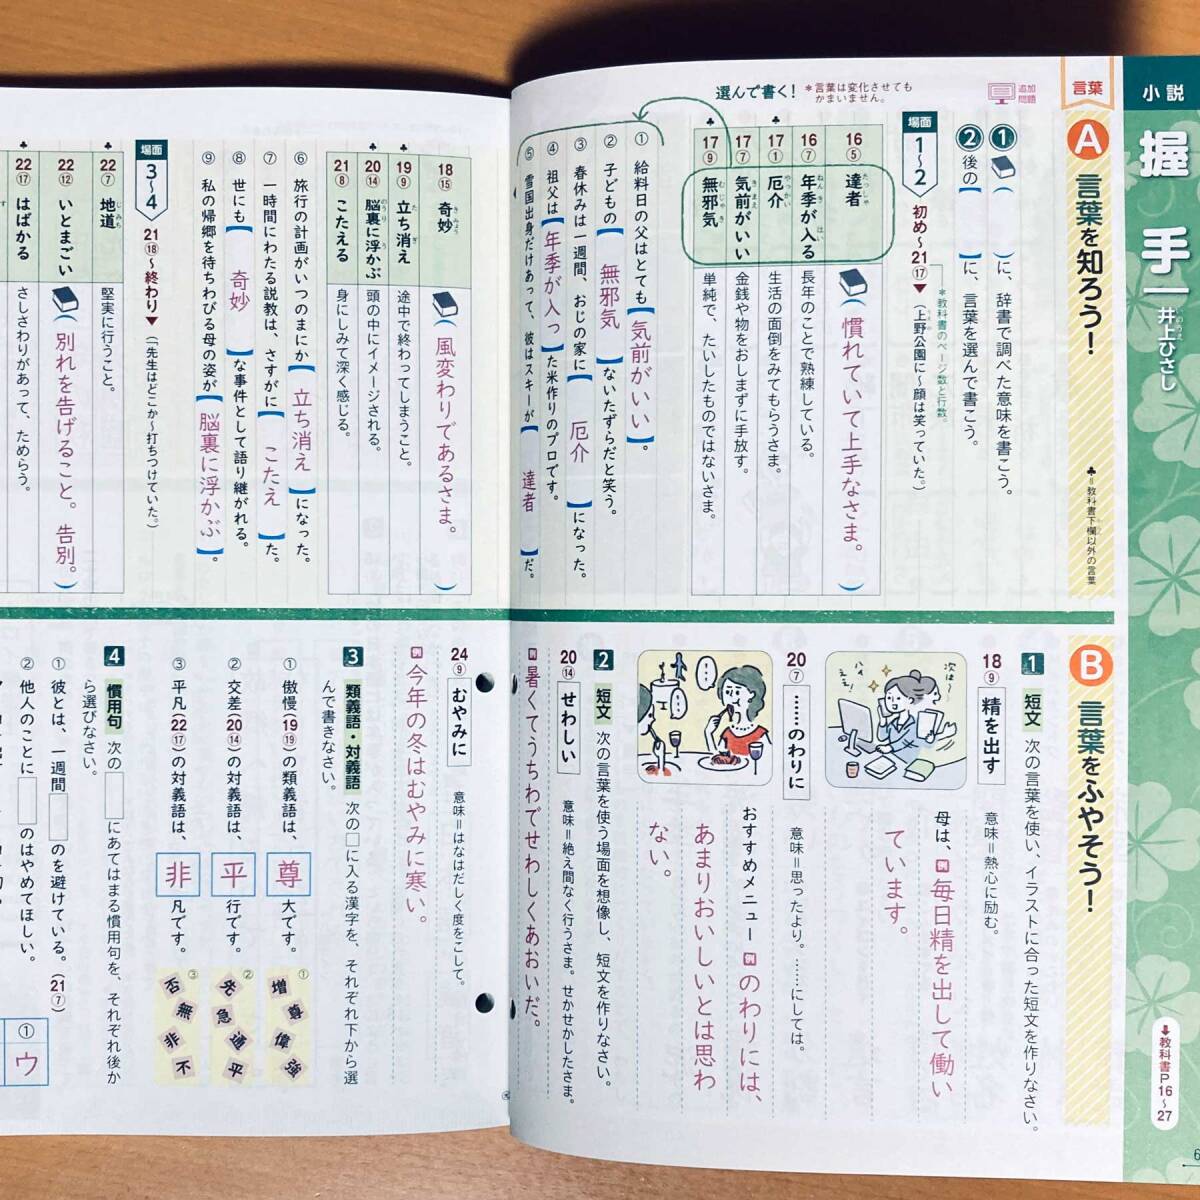 小説
握手
井上ひさし
いのうえ
➡教科書P16〜27
言葉
A 言葉を知ろう!
♣=教科書下欄以外の言葉
❶( )に、辞書で調べた意味を書こう。
❷後の【 】に、言葉を選んで書こう。
追加問題
場面 1〜2 初め〜21⑰▼(上野公園に〜顔は笑っていた。)
*教科書のページ数と行数。
16⑤ 達者 (慣れていて上手なさま。)
16⑦ 年季が入る 長年のことで熟練している。
♣17① 厄介 生活の面倒をみてもらうさま。
17⑦ 気前がいい 金銭や物をおしまずに手放す。
♣17⑨ 無邪気 単純で、たいしたものではないさま。
選んで書く! *言葉は変化させてもかまいません。
① 給料日の父はとても【気前がいい】。
② 子どもの【無邪気】ないたずらだと笑う。
③ 春休みは一週間、おじの家に【厄介】になった。
④ 祖父は【年季が入っ】た米作りのプロです。
⑤ 雪国出身だけあって、彼はスキーが【達者】だ。
18⑮ 奇妙 (風変わりであるさま。)
♣19⑨ 立ち消え 途中で終わってしまうこと。
♣20⑭ 脳裏に浮かぶ 頭の中にイメージされる。
21⑧ こたえる 身にしみて深く感じる。
⑥ 旅行の計画がいつのまにか【立ち消え】になった。
⑦ 一時間にわたる説教は、さすがに【こたえ】た。
⑧ 世にも【奇妙】な事件として語り継がれる。
⑨ 私の帰郷を待ちわびる母の姿が【脳裏に浮かぶ】。
場面 3〜4 21⑱〜終わり▼(「先生はどこか〜打ちつけていた。)
♣22⑦ 地道 堅実に行うこと。
22⑫ いとまごい (別れを告げること。告別。)
♣22⑰ はばかる さしさわりがあって、ためらう。
B 言葉をふやそう!
1 短文 次の言葉を使い、イラストに合った短文を作りなさい。
18⑨ 精を出す 意味=熱心に励む。
母は、例 毎日精を出して働い
ています。
次は〜
ハイ
ええ!
20⑦ ……のわりに 意味=思ったより。……にしては。
おすすめメニュー 例 のわりには、
あまりおいしいとは思わ
ない。
2 短文 次の言葉を使う場面を想像し、短文を作りなさい。
20⑭ せわしい 意味=絶え間なく行うさま。せかせかしたさま。
例 暑くてうちわでせわしくあおいだ。
24⑨ むやみに 意味=はなはだしく度をこして。
例 今年の冬はむやみに寒い。
3 類義語・対義語 次の□に入る漢字を、それぞれ下から選
んで書きなさい。
① 傲慢(19⑲)の類義語は、尊大です。
② 交差(20⑭)の対義語は、平行です。
③ 平凡(22⑰)の対義語は、非凡です。
① 増 尊 偉 強
② 先 急 通 平
③ 否 無 非 不
4 慣用句 次の□にあてはまる慣用句を、それぞれ後か
ら選びなさい。
① 彼とは、一週間□のを避けている。(21⑦)
② 他人のことに□のはやめてほしい。
① ウ